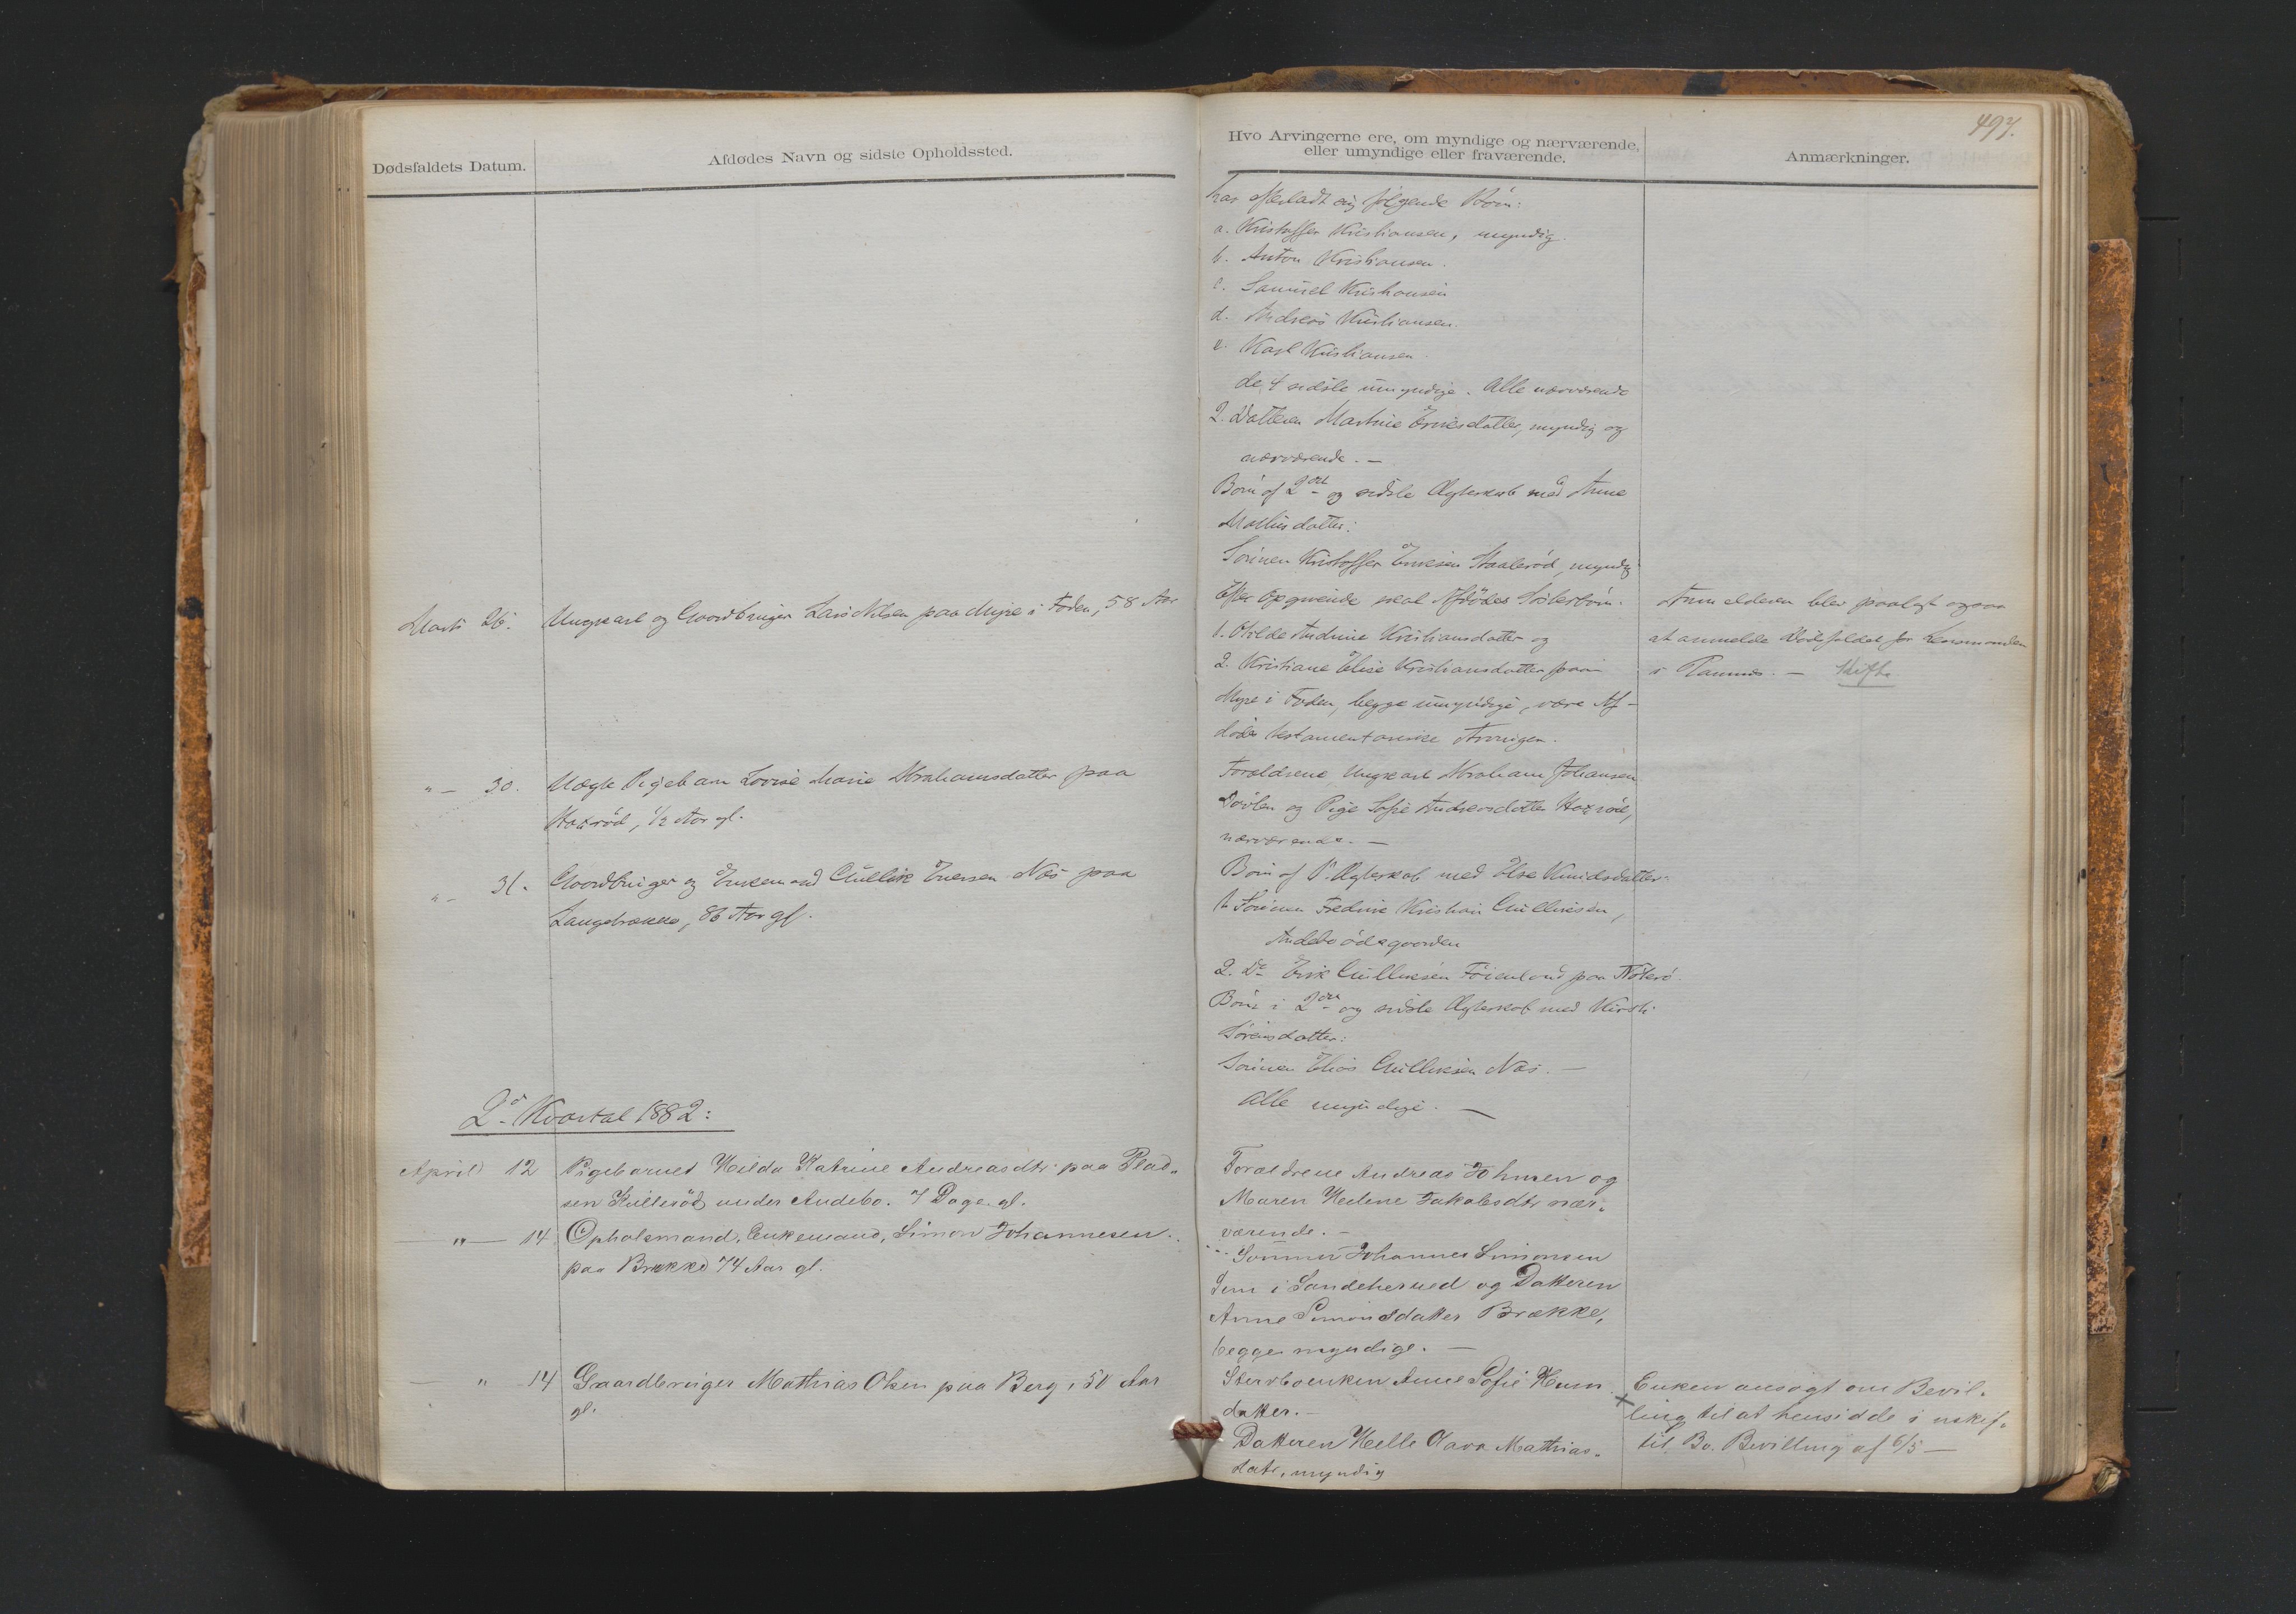 497.
Dødsfaldets Datum.
Afdødes Navn og sidste Opholdssted.
Hvo Arvingerne ere, om myndige og nærværende,
eller umyndige eller fraværende.
Anmærkninger.
har efterladt sig følgende Børn:
a. Kristoffer Kristiansen, myndig.
b. Anton Kristiansen.
c. Samuel Kristiansen
d. Andreas Kristiansen.
e. Karl Kristiansen.
de 4 sidste umyndige. Alle nærværende
2. Datteren Martine Eriksdatter, myndig og
nærværende. —
Børn af 2det og sidste Ægteskab med Anne
Mathisdatter:
Sønnen Kristoffer Eriksen Staalerød, myndig
Marts 26. Ungkarl og Gaardbruger Lars Nilsen paa Myre i Foden, 58 Aar
Efter Opgivende skal Afdødes Søsterbørn.
1. Olilde Andrine Kristiansdatter og
2. Kristiane Elise Kristiansdatter paa
Myre i Foden, begge umyndige, være Af-
dødes testamentariske Arvinger.
Anmelderen blev paalagt ogsaa
at anmelde Dødsfaldet for Lensmanden
i Ramnes. — Skifte
" — 30. Uægte Pigebarn Lovise Marie Abrahamsdatter paa
Haxrød, 1/2 Aar gl.
Forældrene Ungkarl Abraham Johansen
Dovlen og Pige Sofie Andreasdatter Haxrød,
nærværende. —
" — 31. Gaardbruger og Enkemand Gullik Iversen Næs paa
Langebrække, 86 Aar gl.
Børn af 1. Ægteskab med Else Knudsdatter:
1. Sønnen Fredrik Kristian Gulliksen,
Andebo ødegaarden
2. Do Erik Gulliksen Føienland paa Nøterø
Børn i 2det og sidste Ægteskab med Kirsti
Sørensdatter:
Sønnen Elias Gulliksen Næs. —
Alle myndige. —
2det Kvartal 1882:
April 12 Pigebarnet Hilda Katrine Andreasdtr paa Plad-
sen Skillerød under Andebo. 7 Dage gl.
Forældrene Andreas Johnsen og
Maren Helene Jakobsdtr nær-
værende. —
— " — 14 Opholsmand, Enkemand, Simon Johannesen
paa Brække 74 Aar gl.
Sønnen Johannes Simonsen
Jem i Sandeherred og Datteren
Anne Simonsdatter Brække,
begge myndige. —
— " 14 Gaardbruger Mathias Olsen paa Berg, 50 Aar
gl.
Stervboenken Anne Sofie
datter. —
Datteren Helle Olava Mathias-
datr, myndig
× Enken ansøgt om Bevil-
ling til at hensidde i uskif-
tet Bo. Bevilling af 6/5 —